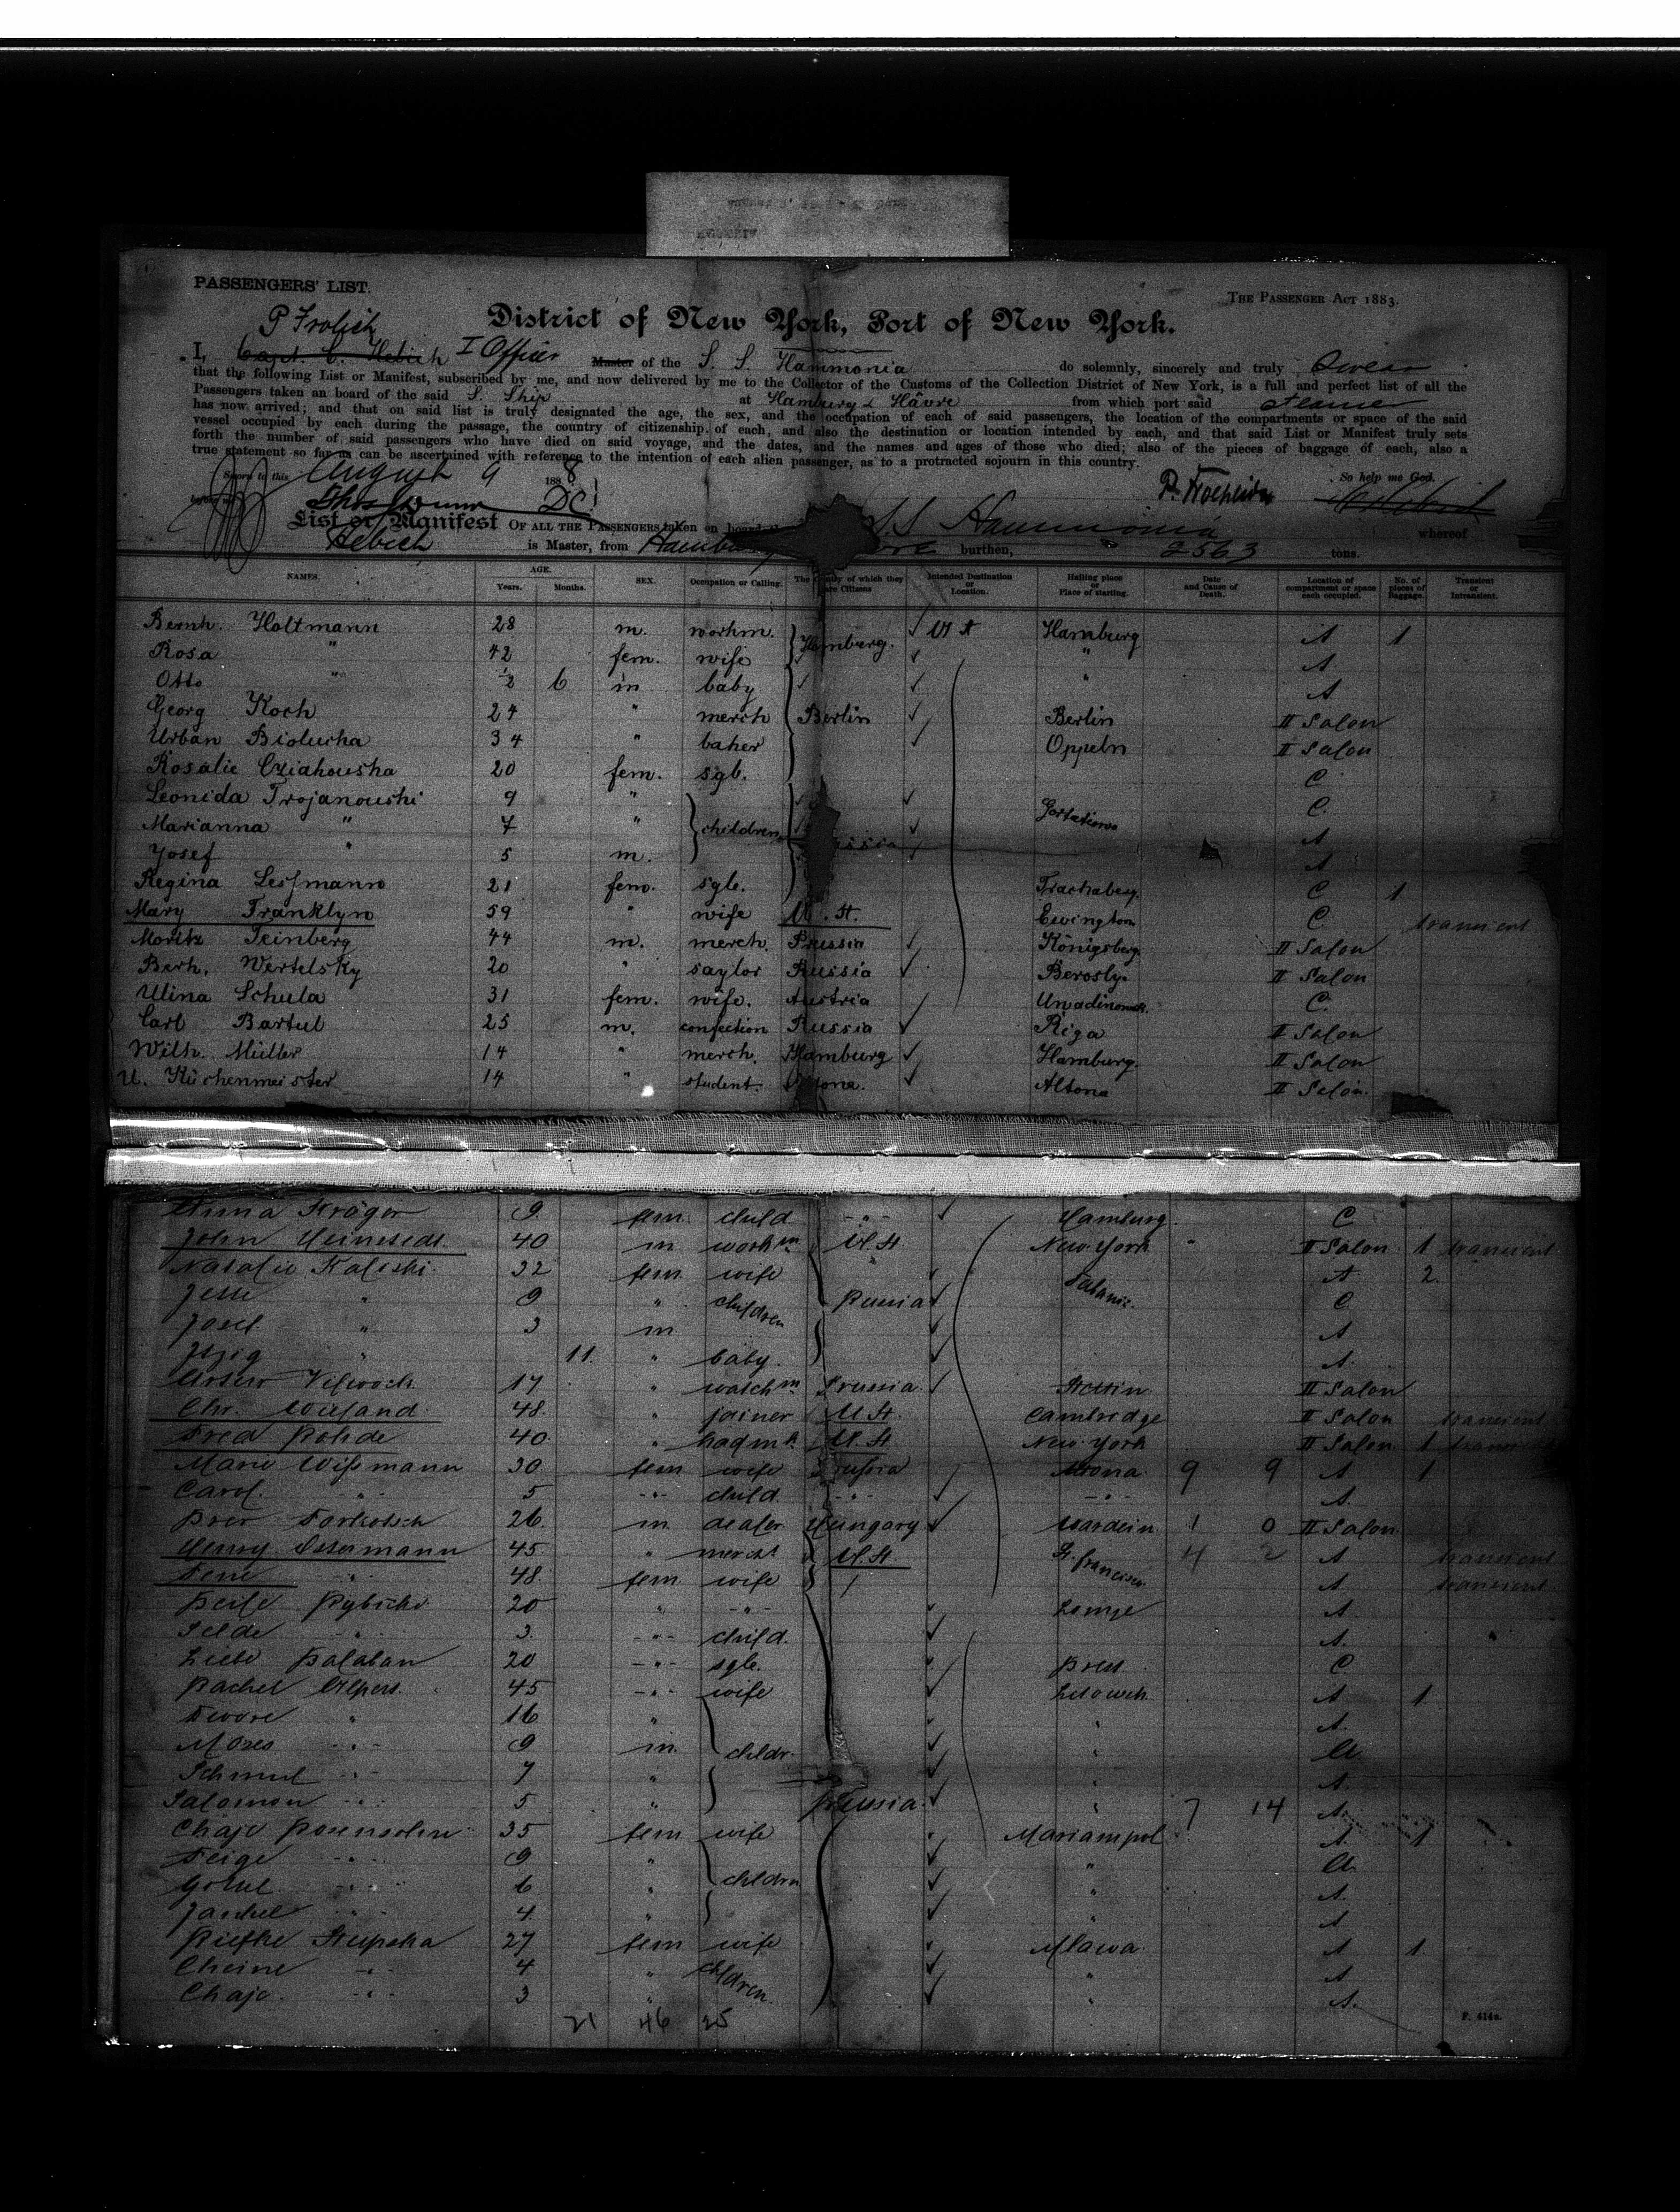 PASSENGERS' LIST.
THE PASSENGER ACT 1883.
District of New York, Port of New York.
P Frolich
I, Capt. C. Hebich I Officer Master of the S. S. Hammonia do solemnly, sincerely and truly swear
that the following List or Manifest, subscribed by me, and now delivered by me to the Collector of the Customs of the Collection District of New York, is a full and perfect list of all the
Passengers taken on board of the said S. Ship at Hamburg & Hâvre from which port said steamer
has now arrived; and that on said list is truly designated the age, the sex, and the occupation of each of said passengers, the location of the compartments or space of the said
vessel occupied by each during the passage, the country of citizenship of each, and also the destination or location intended by each, and that said List or Manifest truly sets
forth the number of said passengers who have died on said voyage, and the dates, and the names and ages of those who died; also of the pieces of baggage of each, also a
true statement so far as can be ascertained with reference to the intention of each alien passenger, as to a protracted sojourn in this country.
Sworn to this August 9 1888 So help me God.
List or Manifest OF ALL THE PASSENGERS taken on board S.S Hammonia whereof
Hebich is Master, from Hamburg burthen, 2563 tons.
NAMES. AGE. Years. Months. SEX. Occupation or Calling. The Country of which they are Citizens Intended Destination or Location. Hailing place or Place of starting. Date and Cause of Death. Location of compartment or space each occupied. No. of pieces of Baggage. Transient or Intransient.
Bernh. Holtmann 28 m. workm. Hamburg. U St Hamburg A 1
Rosa " 42 fem. wife " A
Otto " 6 m baby " A
Georg Koch 24 " merch Berlin Berlin II Salon
Urban Biolucha 34 " baker Oppeln II Salon
Rosalie Cziahousha 20 fem. sgb. C
Leonida Trojanoushi 9 " C.
Marianna " 7 " children A
Josef " 5 m. A
Regina Leßmann 21 fem. sgle. Trachaberg. C 1
Mary Franklyn 59 " wife U. St. Ewington C transient
Moritz Feinberg 44 m. merch. Prussia Königsberg. II Salon
Berh. Wertelsky 20 " saylor Russia Berosly. II Salon
Ulina Schula 31 fem. wife. Austria C.
Carl Bartul 25 m. confection Russia Riga II Salon
Wilh. Müller 14 " merch. Hamburg Hamburg. II Salon
U. Küchenmeister 14 " student. Altona. Altona II Salon.
Anna Kräger 9 fem. child -"- Hamburg. C
John 40 m workm U. St New-York " II Salon 1 transient
Natalie Kaliski 32 fem wife A 2.
Jesse " 9 " children Russia C
Josef. " 3 m A
Itzig " 11. " baby. A.
17 " watchm Prussia Stettin II Salon
Chr. Wiesand 48. " joiner U St. Cambridge II Salon transient
Fred Rohde 40. " U. St New-York II Salon 1 transient
Marie Wißmann 30 fem wife Altona 9 9 A 1
Carol. -"- 5 -"- child. -"- -"- A.
26. m dealer Hungary Wardein 1 0 II Salon
Henry Ostermann 45. " mercht U. St. St. Francisco 4 2 A transient
-"- 48. fem. wife A. transient
20 " -"- Lomze A
-"- 3. -"- child. A.
Liebe Balaban 20 -"- sgle. C
Rachel Alpert. 45 -"- wife A 1
" 16 " " A.
Moses -"- 9 m. childr. " U.
Schmul -"- 7 " " A.
Salomon -"- 5 " Russia " 7 14 A.
Chaje Rosensohn 35 fem wife Mariampol A. 1
Feige -"- 9 " childrn " U.
-"- 6 " " A.
Jankel " 4. " " A
Stupska 27 fem wife Mlawa. A 1
Cheine -"- 4 " children " A
Chaje. -"- 3 " " A.
21 46 25